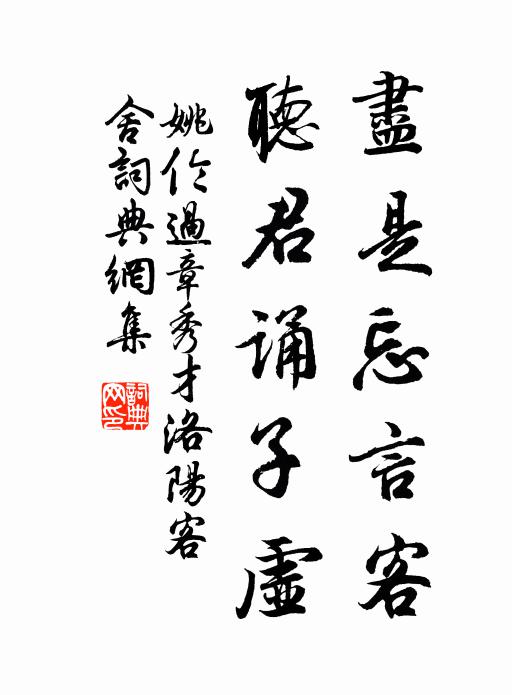 盡是忘言客
聽君誦子虛
姚伦過章秀才洛陽客
舍詞典網集
詞典
网印